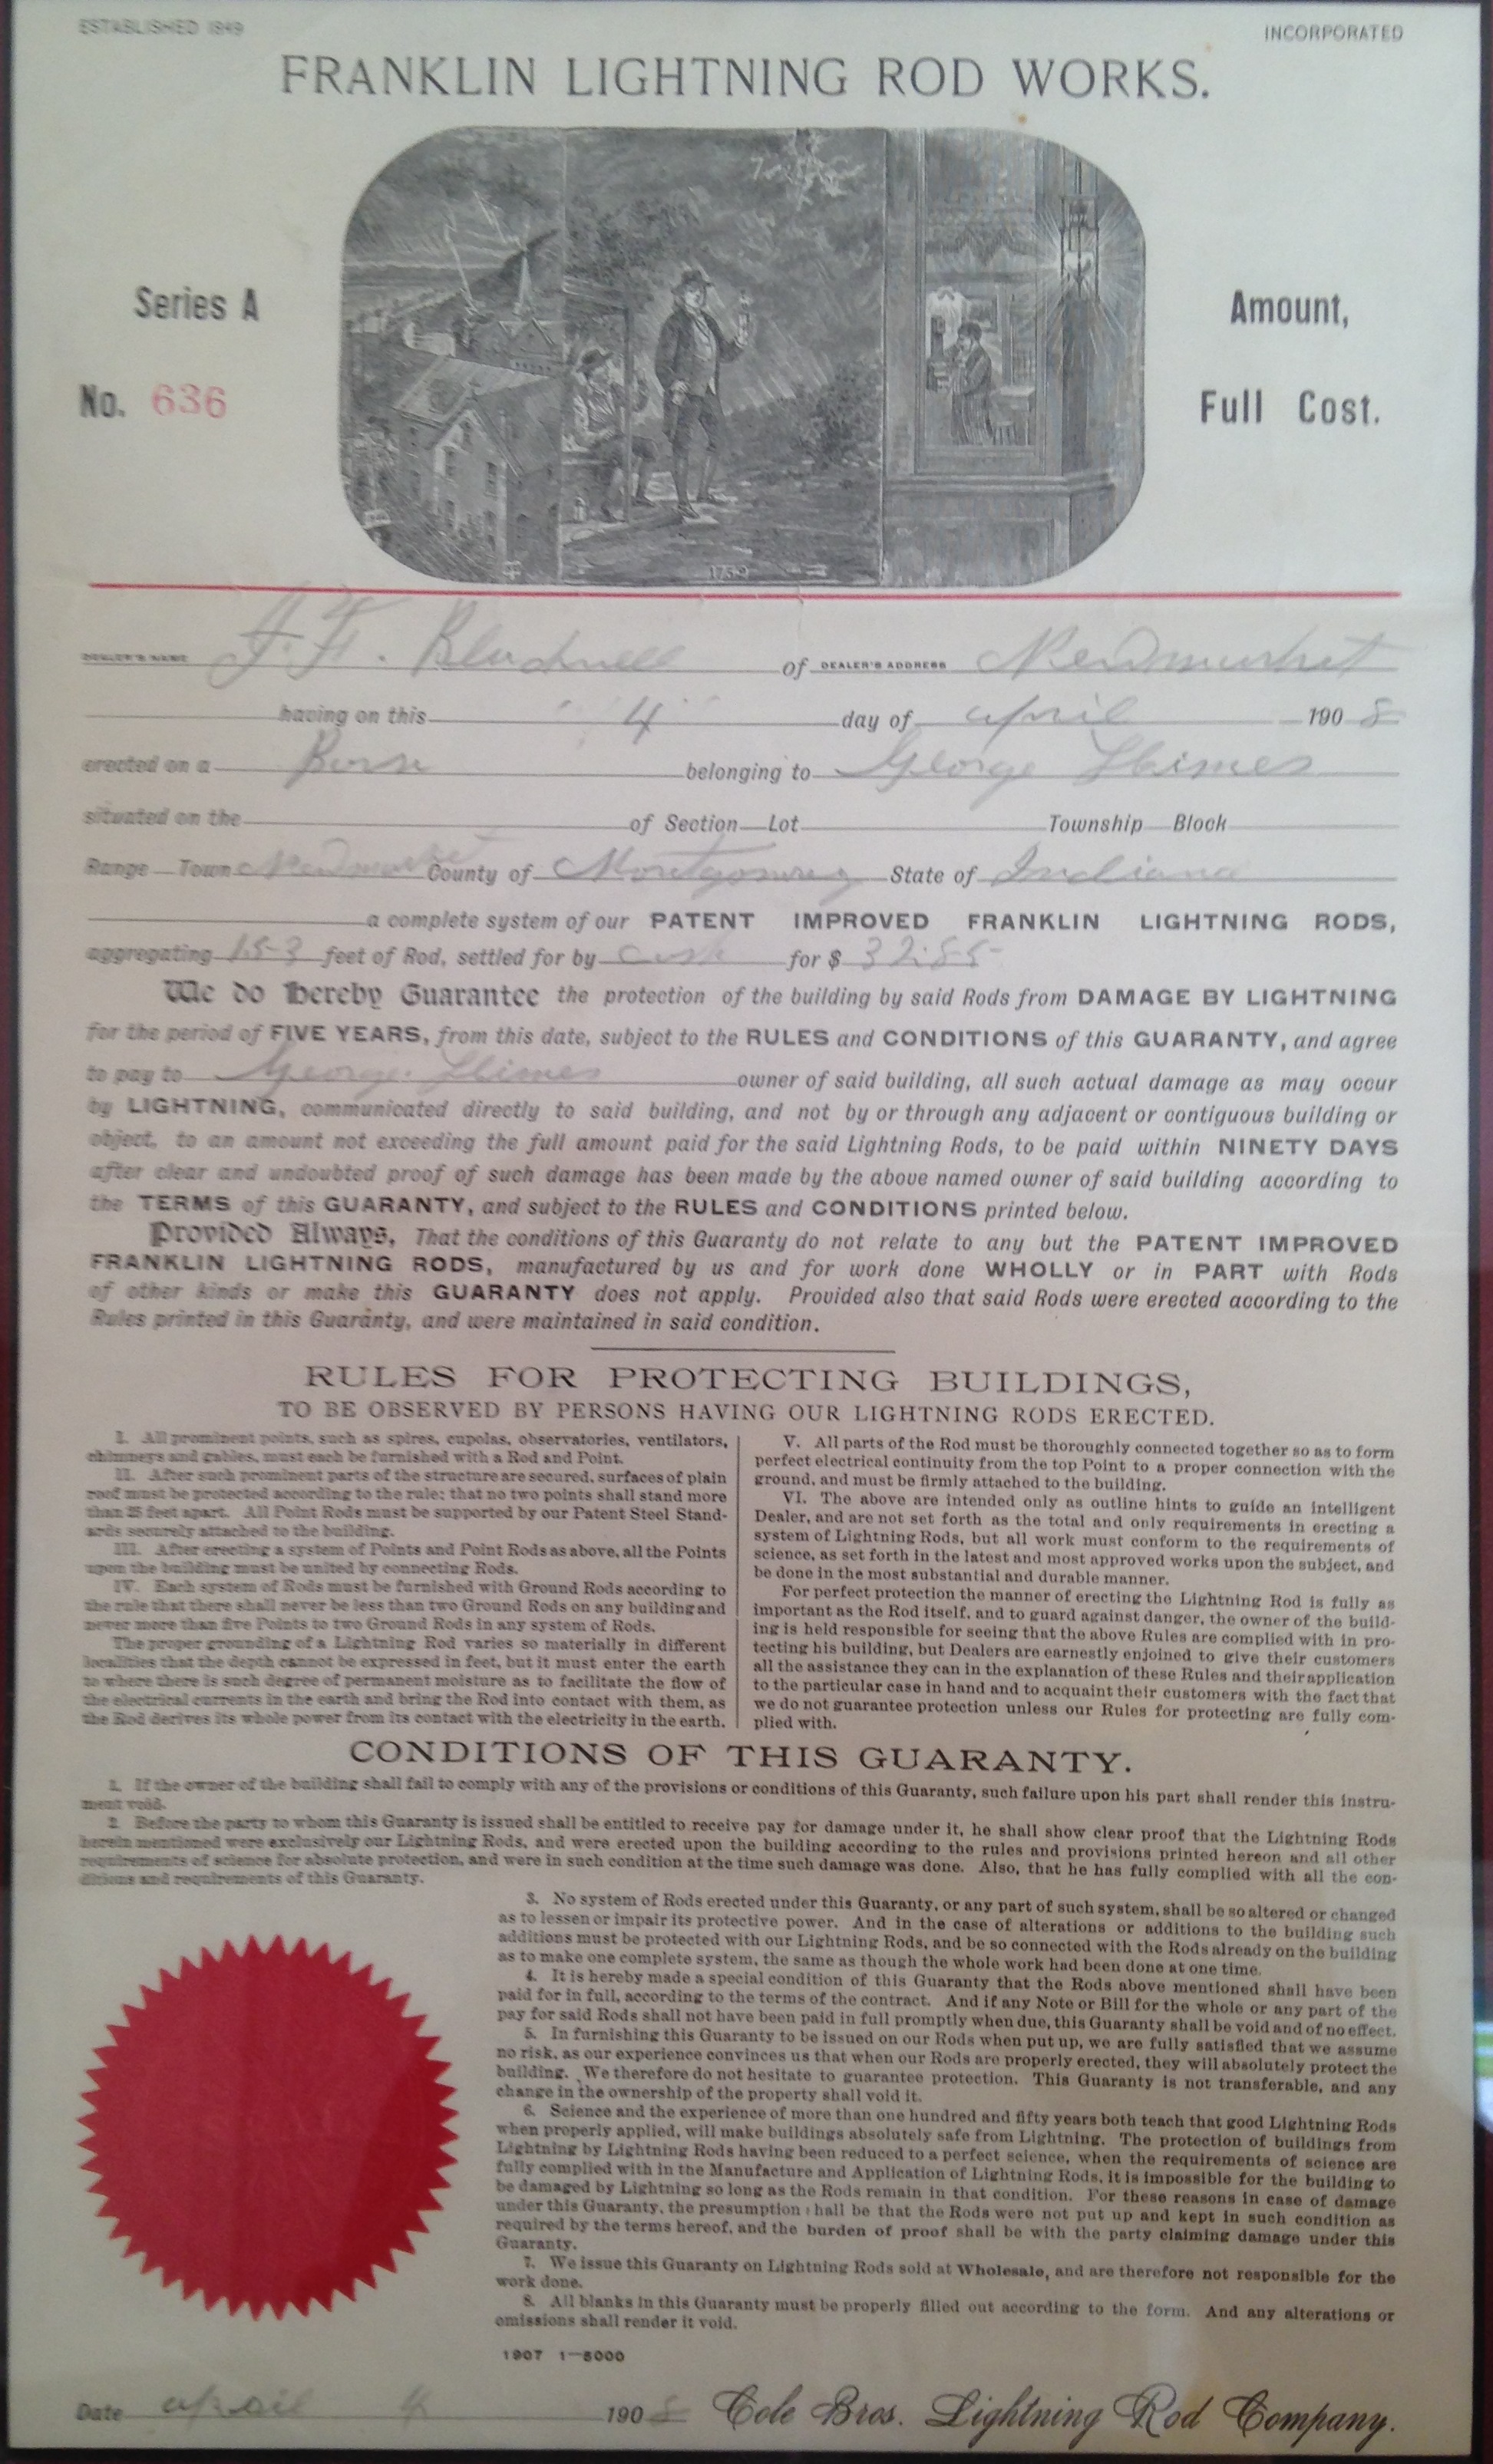 ESTABLISHED 1849
INCORPORATED
FRANKLIN LIGHTNING ROD WORKS.
Series A
Amount,
No. 636
Full Cost.
1752
DEALER'S NAME J. F. of DEALER'S ADDRESS Newmarket
having on this 4 day of april 1908
erected on a belonging to George Himes
situated on the of Section Lot Township Block
Range Town Newmarket County of Montgomery State of Indiana
a complete system of our PATENT IMPROVED FRANKLIN LIGHTNING RODS,
aggregating 153 feet of Rod, settled for by cash for $ 32.85
We do hereby Guarantee the protection of the building by said Rods from DAMAGE BY LIGHTNING
for the period of FIVE YEARS, from this date, subject to the RULES and CONDITIONS of this GUARANTY, and agree
to pay to George Himes owner of said building, all such actual damage as may occur
by LIGHTNING, communicated directly to said building, and not by or through any adjacent or contiguous building or
object, to an amount not exceeding the full amount paid for the said Lightning Rods, to be paid within NINETY DAYS
after clear and undoubted proof of such damage has been made by the above named owner of said building according to
the TERMS of this GUARANTY, and subject to the RULES and CONDITIONS printed below.
Provided Always, That the conditions of this Guaranty do not relate to any but the PATENT IMPROVED
FRANKLIN LIGHTNING RODS, manufactured by us and for work done WHOLLY or in PART with Rods
of other kinds or make this GUARANTY does not apply. Provided also that said Rods were erected according to the
Rules printed in this Guaranty, and were maintained in said condition.
RULES FOR PROTECTING BUILDINGS,
TO BE OBSERVED BY PERSONS HAVING OUR LIGHTNING RODS ERECTED.
I. All prominent points, such as spires, cupolas, observatories, ventilators,
chimneys and gables, must each be furnished with a Rod and Point.
II. After such prominent parts of the structure are secured, surfaces of plain
roof must be protected according to the rule; that no two points shall stand more
than 25 feet apart. All Point Rods must be supported by our Patent Steel Stand-
ards securely attached to the building.
III. After erecting a system of Points and Point Rods as above, all the Points
upon the building must be united by connecting Rods.
IV. Each system of Rods must be furnished with Ground Rods according to
the rule that there shall never be less than two Ground Rods on any building and
never more than five Points to two Ground Rods in any system of Rods.
The proper grounding of a Lightning Rod varies so materially in different
localities that the depth cannot be expressed in feet, but it must enter the earth
to where there is such degree of permanent moisture as to facilitate the flow of
the electrical currents in the earth and bring the Rod into contact with them, as
the Rod derives its whole power from its contact with the electricity in the earth.
V. All parts of the Rod must be thoroughly connected together so as to form
perfect electrical continuity from the top Point to a proper connection with the
ground, and must be firmly attached to the building.
VI. The above are intended only as outline hints to guide an intelligent
Dealer, and are not set forth as the total and only requirements in erecting a
system of Lightning Rods, but all work must conform to the requirements of
science, as set forth in the latest and most approved works upon the subject, and
be done in the most substantial and durable manner.
For perfect protection the manner of erecting the Lightning Rod is fully as
important as the Rod itself, and to guard against danger, the owner of the build-
ing is held responsible for seeing that the above Rules are complied with in pro-
tecting his building, but Dealers are earnestly enjoined to give their customers
all the assistance they can in the explanation of these Rules and their application
to the particular case in hand and to acquaint their customers with the fact that
we do not guarantee protection unless our Rules for protecting are fully com-
plied with.
CONDITIONS OF THIS GUARANTY.
1. If the owner of the building shall fail to comply with any of the provisions or conditions of this Guaranty, such failure upon his part shall render this instru-
ment void.
2. Before the party to whom this Guaranty is issued shall be entitled to receive pay for damage under it, he shall show clear proof that the Lightning Rods
herein mentioned were exclusively our Lightning Rods, and were erected upon the building according to the rules and provisions printed hereon and all other
requirements of science for absolute protection, and were in such condition at the time such damage was done. Also, that he has fully complied with all the con-
ditions and requirements of this Guaranty.
3. No system of Rods erected under this Guaranty, or any part of such system, shall be so altered or changed
as to lessen or impair its protective power. And in the case of alterations or additions to the building such
additions must be protected with our Lightning Rods, and be so connected with the Rods already on the building
as to make one complete system, the same as though the whole work had been done at one time.
4. It is hereby made a special condition of this Guaranty that the Rods above mentioned shall have been
paid for in full, according to the terms of the contract. And if any Note or Bill for the whole or any part of the
pay for said Rods shall not have been paid in full promptly when due, this Guaranty shall be void and of no effect.
5. In furnishing this Guaranty to be issued on our Rods when put up, we are fully satisfied that we assume
no risk, as our experience convinces us that when our Rods are properly erected, they will absolutely protect the
building. We therefore do not hesitate to guarantee protection. This Guaranty is not transferable, and any
change in the ownership of the property shall void it.
6. Science and the experience of more than one hundred and fifty years both teach that good Lightning Rods
when properly applied, will make buildings absolutely safe from Lightning. The protection of buildings from
Lightning by Lightning Rods having been reduced to a perfect science, when the requirements of science are
fully complied with in the Manufacture and Application of Lightning Rods, it is impossible for the building to
be damaged by Lightning so long as the Rods remain in that condition. For these reasons in case of damage
under this Guaranty, the presumption shall be that the Rods were not put up and kept in such condition as
required by the terms hereof, and the burden of proof shall be with the party claiming damage under this
Guaranty.
7. We issue this Guaranty on Lightning Rods sold at Wholesale, and are therefore not responsible for the
work done.
8. All blanks in this Guaranty must be properly filled out according to the form. And any alterations or
omissions shall render it void.
1907 1—5000
Date april 4 1908 Cole Bros. Lightning Rod Company.